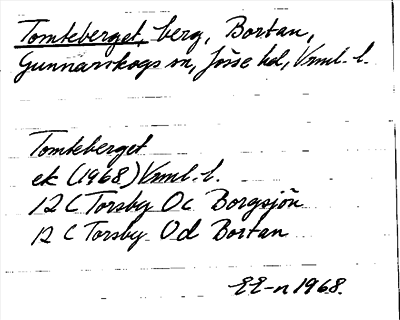 Tomteberget, berg, Bortan,
Gunnarskogs sn, Jösse hd, Vrml. l.
Tomteberget
ek (1968) Vrml. l.
12 C Torsby 0c Borgsjön
12 C Torsby 0d Bortan
EE-n 1968.